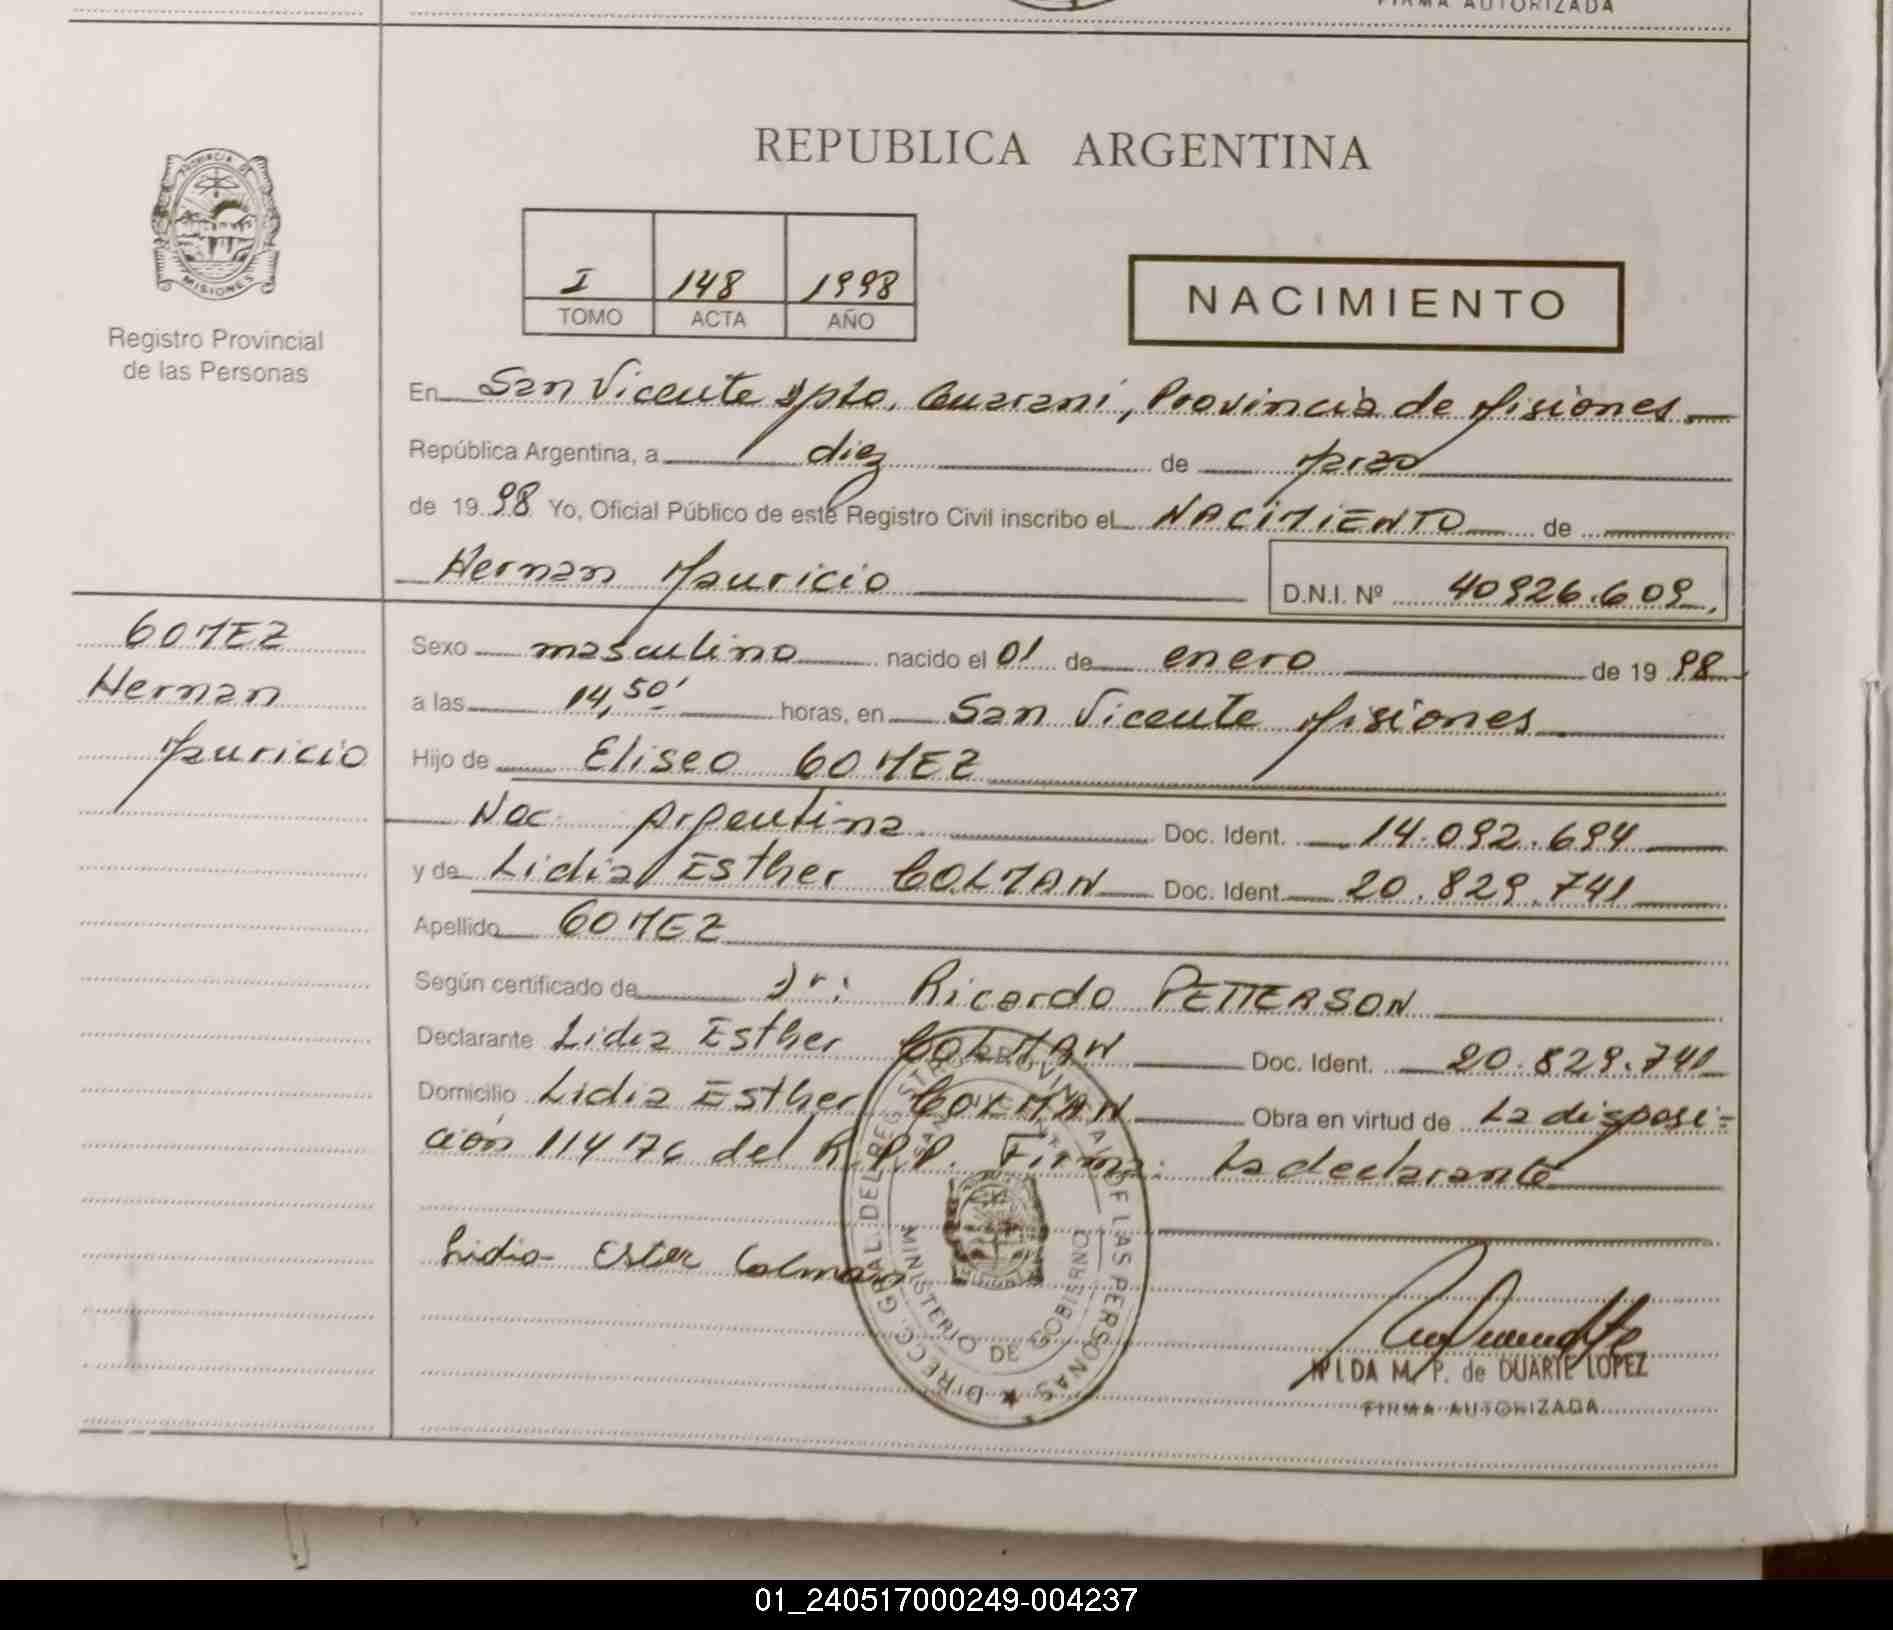 FIRMA AUTORIZADA
REPUBLICA ARGENTINA
PROVINCIA DE MISIONES
Registro Provincial
de las Personas
I 148 1998
TOMO ACTA AÑO
NACIMIENTO
En San Vicente Dpto. Guarani, Provincia de Misiones
República Argentina, a diez de Marzo
de 1998 Yo, Oficial Público de este Registro Civil inscribo el NACIMIENTO de
Hernan Mauricio D.N.I. Nº 40926.609
GOMEZ
Hernan
Mauricio
Sexo masculino nacido el 01 de enero de 1998
a las 14,50' horas, en San Vicente Misiones
Hijo de Eliseo GOMEZ
Nac. Argentina Doc. Ident. 14.092.694
y de Lidia Esther COLMAN Doc. Ident. 20.829.741
Apellido GOMEZ
Según certificado de Dr: Ricardo PETTERSON
Declarante Lidia Esther COLMAN Doc. Ident. 20.829.741
Domicilio Lidia Esther COLMAN Obra en virtud de La disposi=
ción 114176 del R.P.P. Firma: La declarante
Lidia Ester Colman
DIRECC. GRAL. DEL REGISTRO PROVINCIAL DE LAS PERSONAS
MINISTERIO DE GOBIERNO
SAN VICENTE
NILDA M. P. de DUARTE LOPEZ
FIRMA AUTORIZADA
01_240517000249-004237